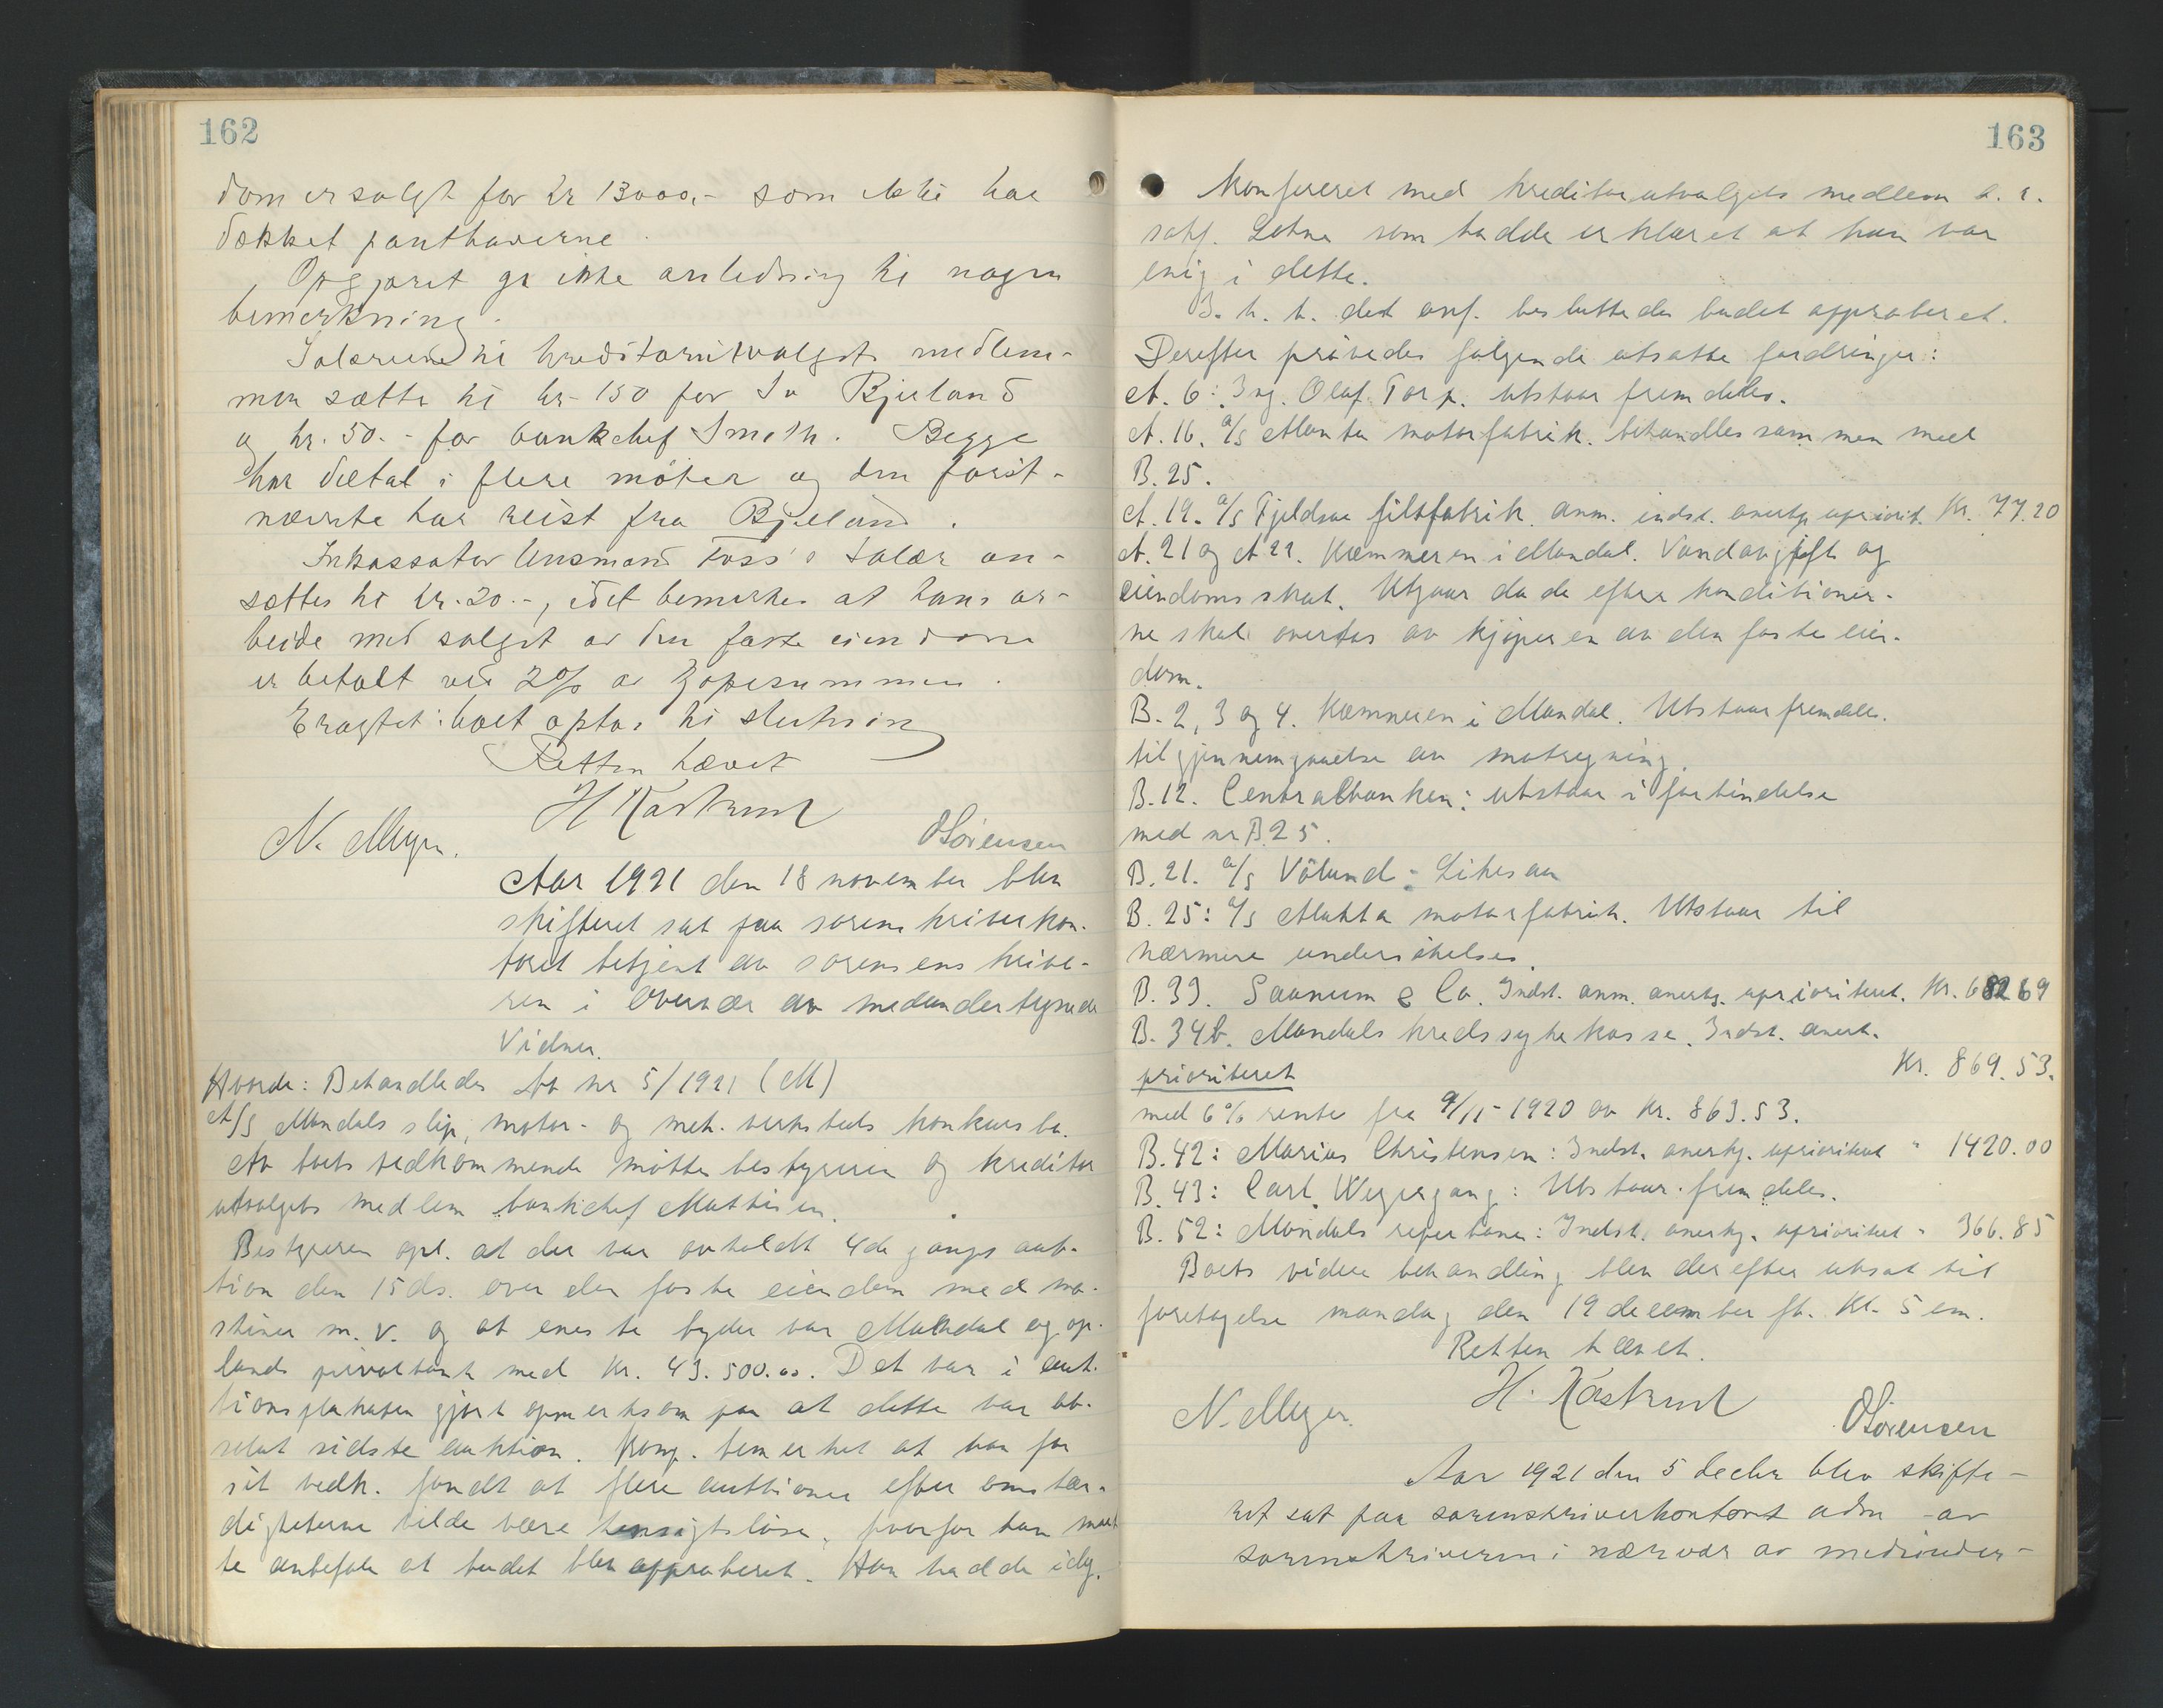 162
dom er solgt for kr 13000,- som ikke har
dækket panthaverne.
Opgjøret ga ikke anledning til nogen
bemerkning.
Salærene til kreditorutvalgets medlem-
mer sættes til kr 150 for Bjelland
og kr. 50.- for bankchef Smith. Begge
har deltat i flere møter og den først-
nævnte har reist fra Bjelland.
Inkassator Unsmand Foss's salær an-
sættes til kr. 20.-, idet bemerkes at hans ar-
beide med salget av den faste eiendom
er betalt ved 2% av kjøpesummen.
Eragtet: boet optas til slutning
Retten hævet
H Kastrud
N. Meyer. OSørensen
Aar 1921 den 18 november blev
skifteret sat paa sorenskriverkon-
toret betjent av sorenskrive-
ren i overvær av medundertegnede
Vidner.
Hvorda: Behandledes No nr 5/1921 (M)
A/S Mandals slip, motor- og mek. verksteds konkursbo.
Av boets vedkommende møtte bestyreren og kreditor
utvalgets medlem bankchef Mathisen.
Bestyreren opl. at der var avholdt 4de gangs auk-
tion den 15 ds. over den faste eiendom med ma-
skiner m.v. og at eneste byder var Mandal og op-
lands privatbank med Kr. 43.500.00. Det var i auk-
tionsplakaten gjort opmerksom paa at dette var ab-
solut sidste auktion. Komp. bemerket at han for
sit vedk. fandt at flere auktioner efter omstæn-
digheterne vilde være hensigtsløse, hvorfor han maat
te anbefale at budet blev approberet. Han hadde idg.
163
Konfereret med kreditorutvalgets medlem o. r.
sakf. Lohne som hadde erklæret at han var
enig i dette.
I. h. t. det anf. besluttedes budet approberet.
Derefter prøvedes følgende utsatte fordringer:
A. 6: Ing. Olaf Torp. Utstaar fremdeles.
A. 16. A/S Manta motorfabrik. behandles sammen med
B. 25.
A. 19. A/S Fjeldsaa filtfabrik. anm. indst. anerkj. upriorit. Kr. 77.20
A. 21 og A 22. Kæmneren i Mandal. Vandavgift og
eiendomsskat. Utgaar da de efter konditioner-
ne skal overtas av kjøperen av den faste eien-
dom.
B. 2, 3 og 4. Kæmneren i Mandal. Utstaar fremdeles.
til gjennemgaaelse av motregning.
B. 12. Centralbanken: utstaar i forbindelse
med nr B 25.
B. 21. A/S Vølund: Likesaa
B. 25: A/S Manta motorfabrik. Utstaar til
nærmere undersøkelse.
B. 33. Saanum & Co. Indst. anm. anerkj. uprioriteret. Kr. 682 69
B. 34b. Mandals kredssykekasse. Indst. anerk.
prioriteret Kr. 869.53.
med 6% rente fra 9/11-1920 av Kr. 863.53.
B. 42: Marius Christensen: Indst. anerkj. uprioritert " 1420.00
B. 43: Carl Wegergang: Utstaar fremdeles.
B. 52: Mandals reperbane: Indst. anerkj. uprioritet " 366.85
Boets videre behandling blev derefter utsat til
foretagelse mandag den 19 december ft. Kl. 5 em.
Retten hævet.
H. Kastrud
N. Meyer. OSørensen
Aar 1921 den 5 decbr blev skifte-
ret sat paa sorenskriverkontoret adm av
sorenskriveren i nærvær av medunder-